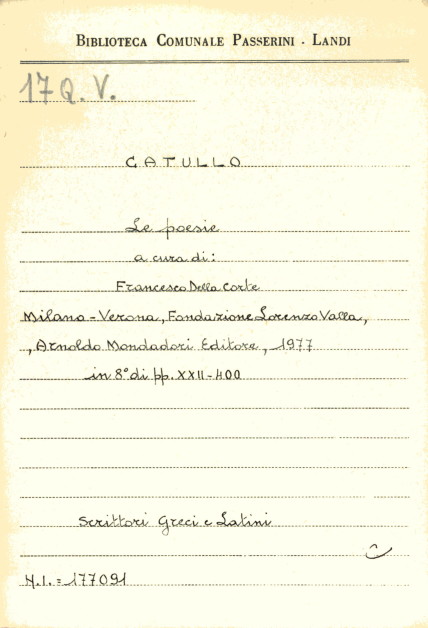 BIBLIOTECA COMUNALE PASSERINI - LANDI
17 Q. V.
CATULLO
Le poesie
a cura di:
Francesco Della Corte
Milano - Verona, Fondazione Lorenzo Valla,
, Arnoldo Mondadori Editore, 1977
in 8° di pp. XXII-400
Scrittori Greci e Latini
N.I. = 177091